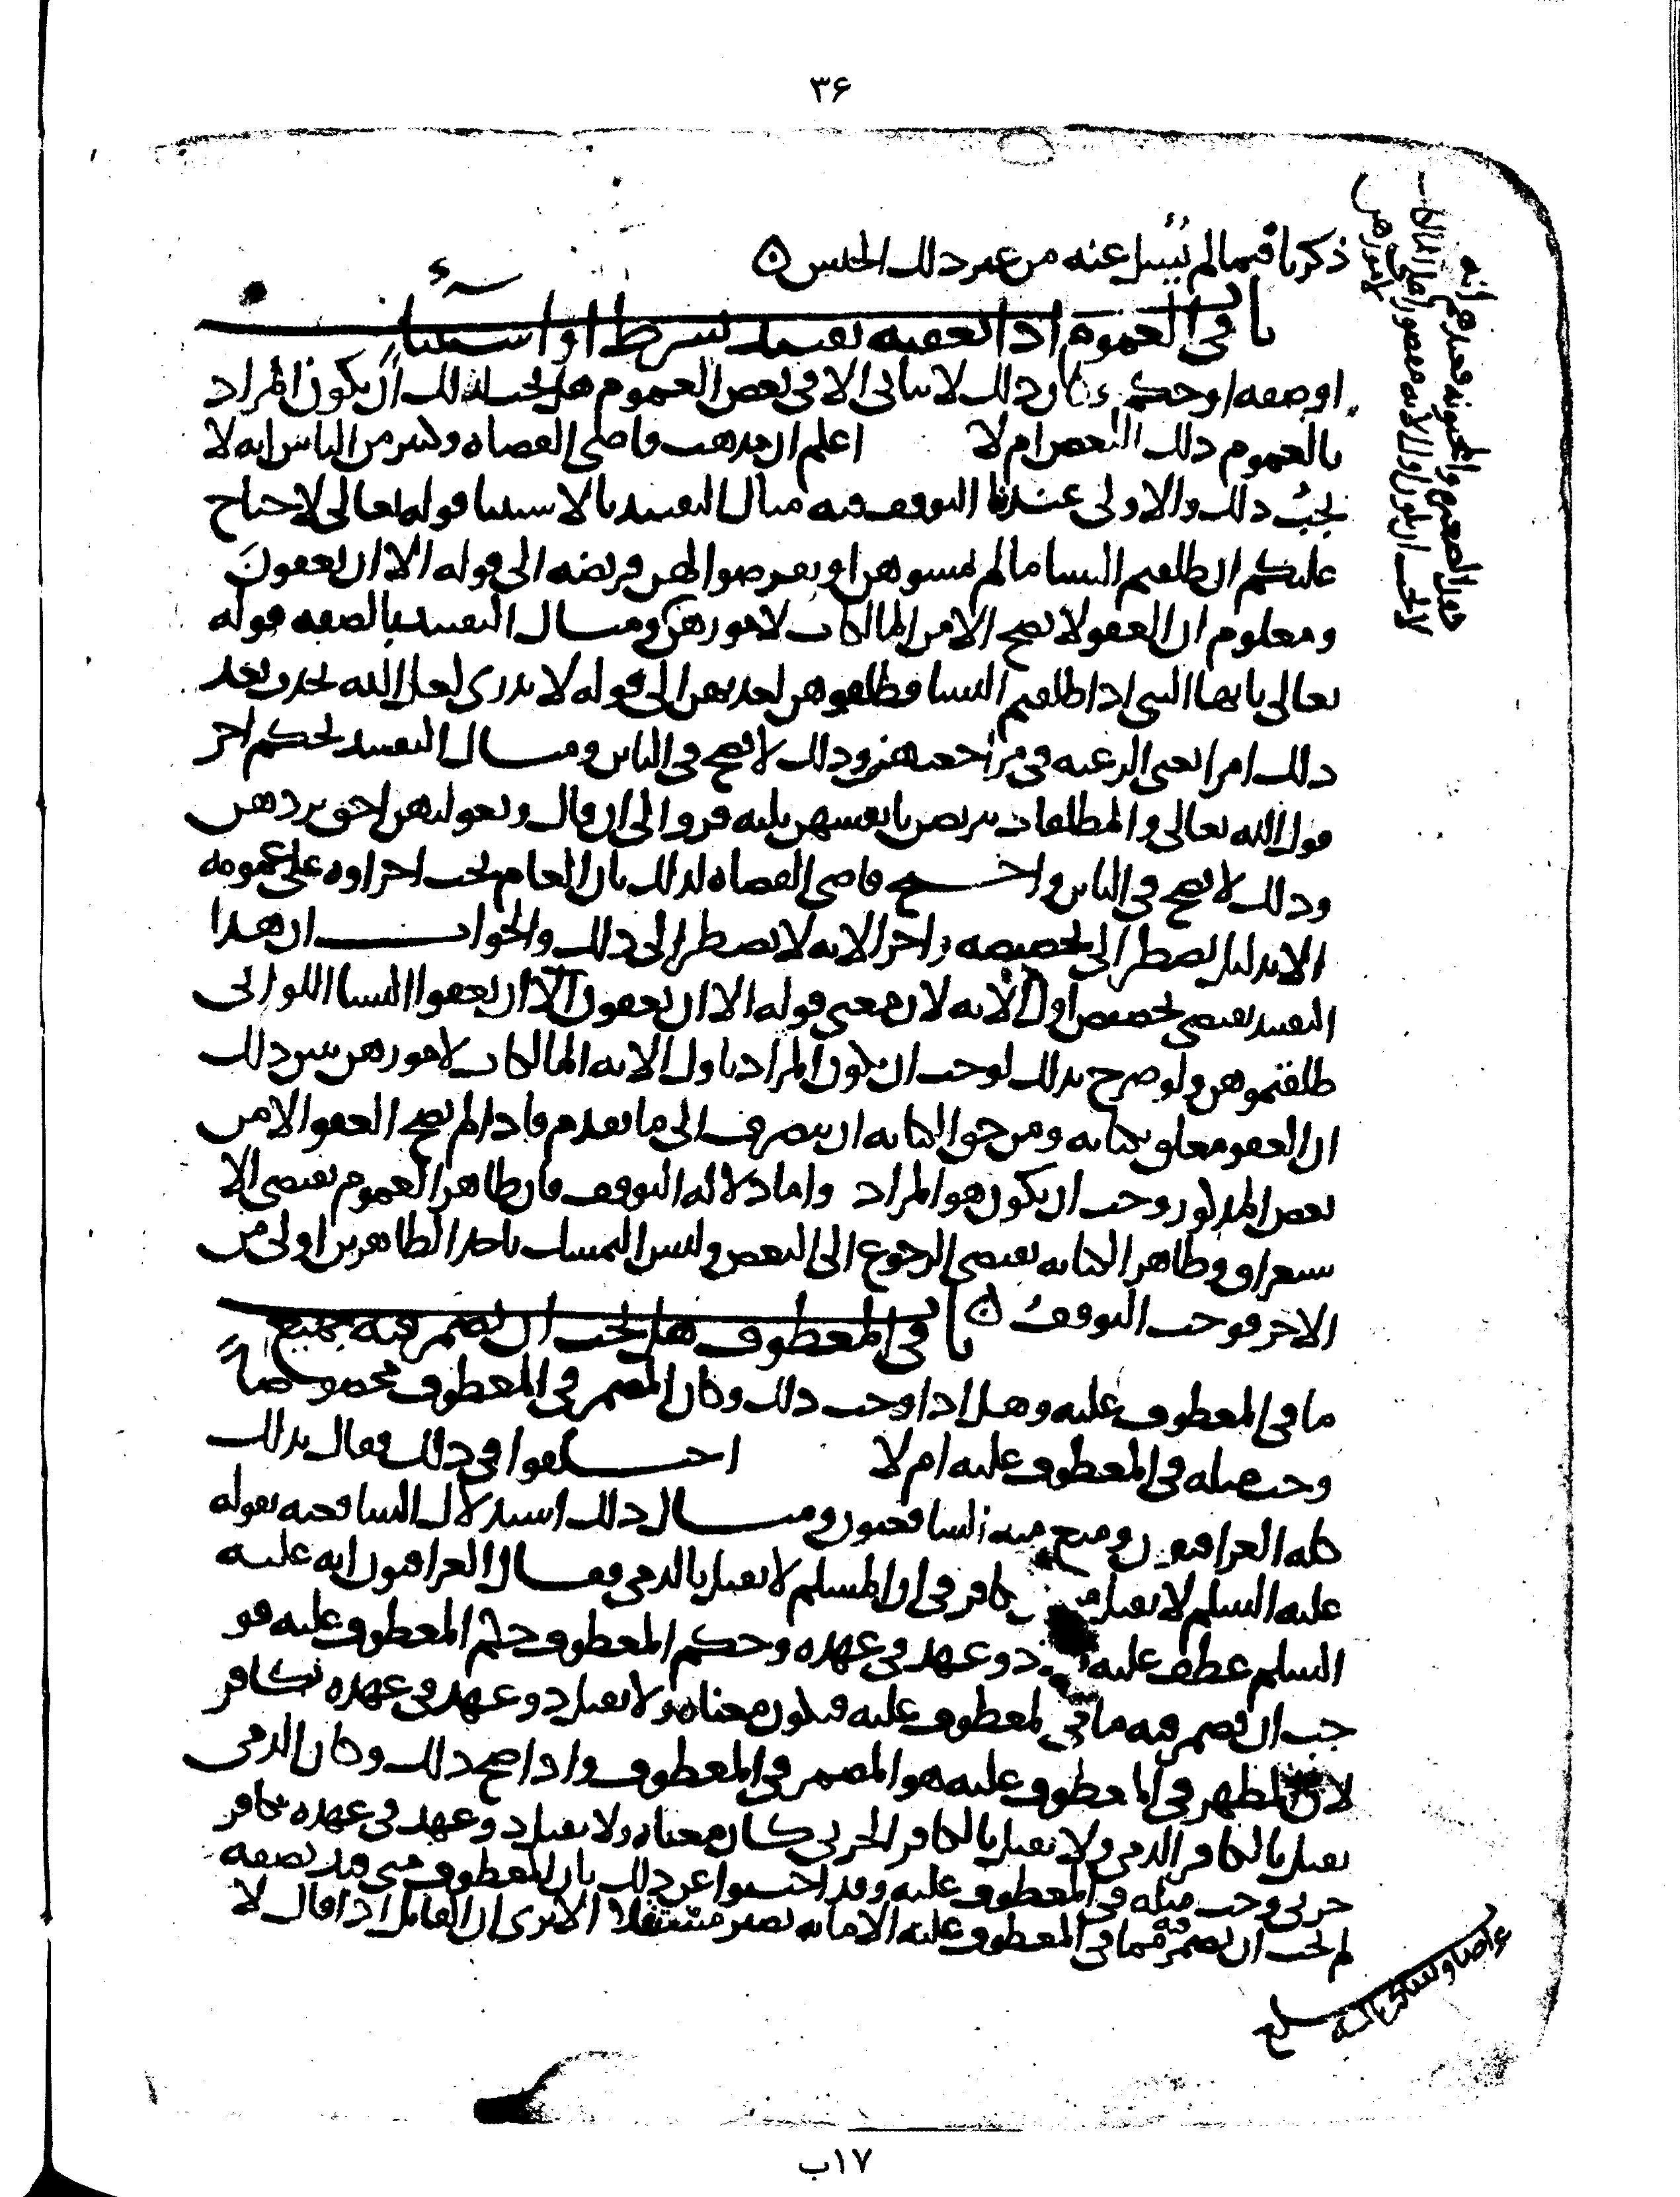 ٣۶
ذكرنا فيما لم يُسل عنه من غير ذلك الجنس ٥
باب في العموم اذا تعقبه تقييد بشرط او استثناء
او صفه او حكم وكان ذلك لا يتاتى الا في بعض العموم هل يجب لذلك ان يكون المراد
بالعموم ذلك البعض ام لا اعلم ان مذهب قاضي القضاه وكثير من الناس انه لا
يجبُ ذلك والاولى عندنا التوقف فيه مثال التقييد بالاستثنا قوله تعالى لا جناح
عليكم ان طلقتم النسا ما لم تمسوهن او تفرضوا لهن فريضه الى قوله الا ان يعفونَ
ومعلوم ان العفو لا يصح الا من المالكات لامورهن ومثال التقييد بالصفه قوله
تعالى يايها النبي اذا طلقتم النسا فطلقوهن لعدتهن الى قوله لا تدري لعل الله يحدث بعد
ذلك امرا يعني الرغبه في مراجعتهن وذلك لا يصح في البائن ومثال التقييد بحكم اخر
قول الله تعالى والمطلقات يتربصن بانفسهن ثلثه قروء الى ان قال وبعولتهن احق بردهن
وذلك لا يصح في البائن واحتج قاضي القضاه لذلك بان العام يجب اجراوه على عمومه
الا بدليل يضطر الى تخصيصه واخر الايه لا يضطر الى ذلك والجواب ان هذا
التقييد يقتضي تخصيص اول الايه لان معنى قوله الا ان يعفون الا ان يعفوا النسا اللواتي
طلقتموهن ولو صرح بذلك لوجب ان يكون المراد باول الايه المالكات لامورهن يبين ذلك
ان العفو معلق بكنايه ومن حق الكنايه ان ينصرف الى ما تقدم فاذا لم يصح العفو الا من
بعض المذكور وجب ان يكون هو المراد واما دلاله التوقف فان ظاهر العموم يقتضي الا
ستغراق وظاهر الكنايه يقتضي الرجوع الى البعض وليس التمسك باحد الظاهرين اولى من
الاخر فوجب التوقفُ ٥ باب في المعطوف هل يجب ان يضمر فيه جميع
ما في المعطوف عليه وهل اذا وجب ذلك وكان المضمر في المعطوف مخصوصاً
وجب مثله في المعطوف عليه ام لا اختلفوا في ذلك فقال بذلك
كله العراقيون ومنع منه الشافعيون ومثال ذلك استدلال الشافعيه بقوله
عليه السلم لا يقتل بكافر في ان المسلم لا يقتل بالذمي فقال العراقيون انه عليه
السلم عطف عليه ذو عهد في عهده وحكم المعطوف حكم المعطوف عليه فو
جب ان يضمر فيه ما في المعطوف عليه فيكون معناه ولا يقتل ذو عهد في عهده بكافر
لان المظهر في المعطوف عليه هو المضمر في المعطوف واذا صح ذلك وكان الذمي
يقتل بالكافر الذمي ولا يقتل بالكافر الحربي كان معناه ولا يقتل ذو عهد في عهده بكافر
حربي وجب مثله في المعطوف عليه وقد اجيبوا عن ذلك بان المعطوف متى قيد بصفه
لم يجب ان يضمر فيه مما في المعطوف عليه الا ما به يصير مستقلا الا ترى ان القائل اذا قال لا
١٧ب